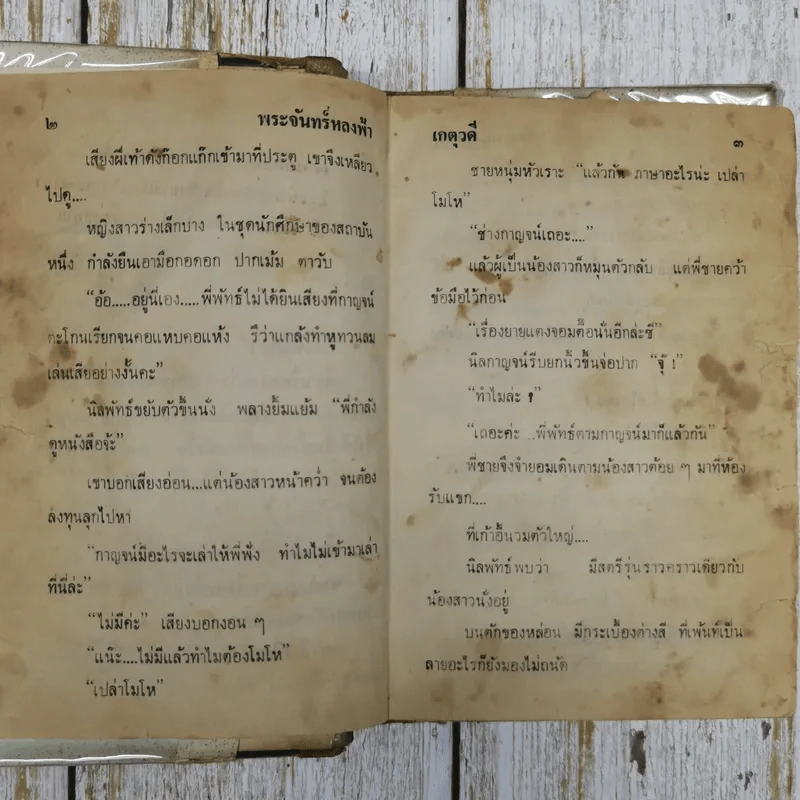 ๒
พระจันทร์หลงฟ้า
เสียงฝีเท้าดังก๊อกแก๊กเข้ามาที่ประตู เขาจึงเหลียว
ไปดู....
หญิงสาวร่างเล็กบาง ในชุดนักศึกษาของสถาบัน
หนึ่ง กำลังยืนเอามือกอดอก ปากเม้ม ตาวับ
“อ้อ.....อยู่นี่เอง.....พี่พัทธ์ไม่ได้ยินเสียงที่กาญจน์
ตะโกนเรียกจนคอแหบคอแห้ง รึว่าแกล้งทำหูทวนลม
เล่นเสียอย่างงั้นคะ”
นิลพัทธ์ขยับตัวขึ้นนั่ง พลางยิ้มแย้ม “พี่กำลัง
ดูหนังสือจ้ะ”
เขาบอกเสียงอ่อน...แต่น้องสาวหน้าคว่ำ จนต้อง
ลงทุนลุกไปหา
“กาญจน์มีอะไรจะเล่าให้พี่ฟัง ทำไมไม่เข้ามาเล่า
ที่นี่ล่ะ”
“ไม่มีค่ะ” เสียงบอกงอน ๆ
“แน๊ะ....ไม่มีแล้วทำไมต้องโมโห”
“เปล่าโมโห”
เกตุวดี
๓
ชายหนุ่มหัวเราะ “แล้วกัน ภาษาอะไรน่ะ เปล่า
โมโห”
“ช่างกาญจน์เถอะ....”
แล้วผู้เป็นน้องสาวก็หมุนตัวกลับ แต่พี่ชายคว้า
ข้อมือไว้ก่อน
“เรื่องยายแตงจอมตื๊อนั่นอีกล่ะซี”
นิลกาญจน์รีบยกนิ้วขึ้นจ่อปาก “จุ๊ !”
“ทำไมล่ะ ?”
“เถอะค่ะ ..พี่พัทธ์ตามกาญจน์มาก็แล้วกัน”
พี่ชายจึงจำยอมเดินตามน้องสาวต้อย ๆ มาที่ห้อง
รับแขก....
ที่เก้าอี้นวมตัวใหญ่....
นิลพัทธ์พบว่า มีสตรีรุ่นราวคราวเดียวกับ
น้องสาวนั่งอยู่
บนตักของหล่อน มีกระเบื้องต่างสี ที่เพ้นท์เป็น
ลายอะไรก็ยังมองไม่ถนัด